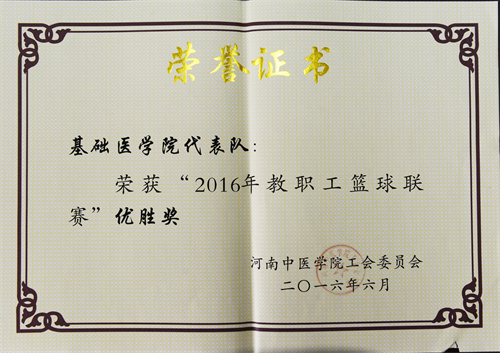 荣誉证书
基础医学院代表队：
荣获“2016年教职工篮球联
赛”优胜奖
河南中医学院工会委员会
二〇一六年六月